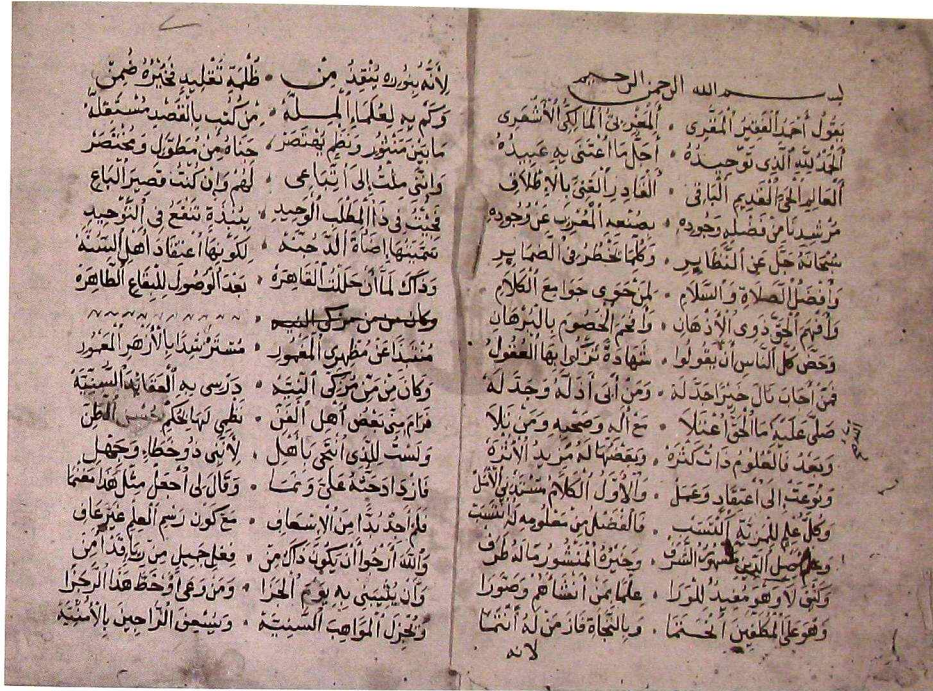 بسم الله الرحمن الرحيم
يقول أحمد الفقير المقري • المغربي المالكي الأشعري
الحمد لله الذي توحيده • أجل ما اعتنى به عبيده
العالم الحي القديم الباقي • القادر الغني بالإطلاق
مرشدنا من فضله وجوده • بصنعه المعرب عن وجوده
سبحانه جل عن النظاير • وكلما يخطر في الضماير
وأفضل الصلاة والسلام • لمن حوى جوامع الكلام
وأفهم الحق ذوي الأذهان • وأفحم الخصوم بالبرهان
وحض كل الناس أن يقولوا • شهادة تزكى بها العقول
فمن أجاب نال خيرا جد له • ومن أبى أذله وجدله
صلى عليه ما الحق اعتلا • مع آله وصحبه ومن تلا
وبعد فالعلوم ذات كثره • وبعضها له مزيد الأثره
ونوعت إلى اعتقاد وعمل • والأول الكلام
وكل علم للمزية اكتسب • فالفضل من معلومه له انتسب
وعلم أصل الدين الشرف • وخيره المنثور ما له طرف
وكيف لا وهو مفيد للورا • علما بمن أنشأهم وصورا
وهو على المكلفين انحتما • وبالنجاة فاز من له انتما
لأنه
لأنه بنوره ينقذ من • ظلمة تقليد فخيره ضمن
وكم به لعلماء الملة • من كتب بالقصد مستقلة
ما بين منثور ونظم يقتصر • جناه من مطول ومختصر
وإنني ملت إلى اتباعي • لهم وإن كنت قصير الباع
فجئت في ذا المطلب الوحيد • بنبذة تنفع في التوحيد
سميتها إضاءة الدجنة • لكونها اعتقاد أهل السنة
وذاك لما أن حللت القاهره • بعد الوصول للبقاع الطاهره
منتبذا عن مظهري المعمور • مستترشدا بالأزهر المعمور
وكان من من مزكي النيه • درسي به العقايد السنيه
فرام مني بعض أهل الفن • نظمي لها بحكم حسن الظن
ولست للذي انتمى بأهل • لأنني ذو خطاء وجهل
فازداد حثه علي ونما • وقال لي اجعل مثل هذا مغنما
فلم أجد بدا من الإسعاف • مع كون رسم العلم غير عاف
والله أرجوا أن يكون ذاك من • فعل جميل من رياء قد أمن
وأن يثيبني به يوم الجزا • ومن وعى أو خط هذا الرجزا
ويجزل المواهب السنيه • ويسعف الراجين بالأمنيه